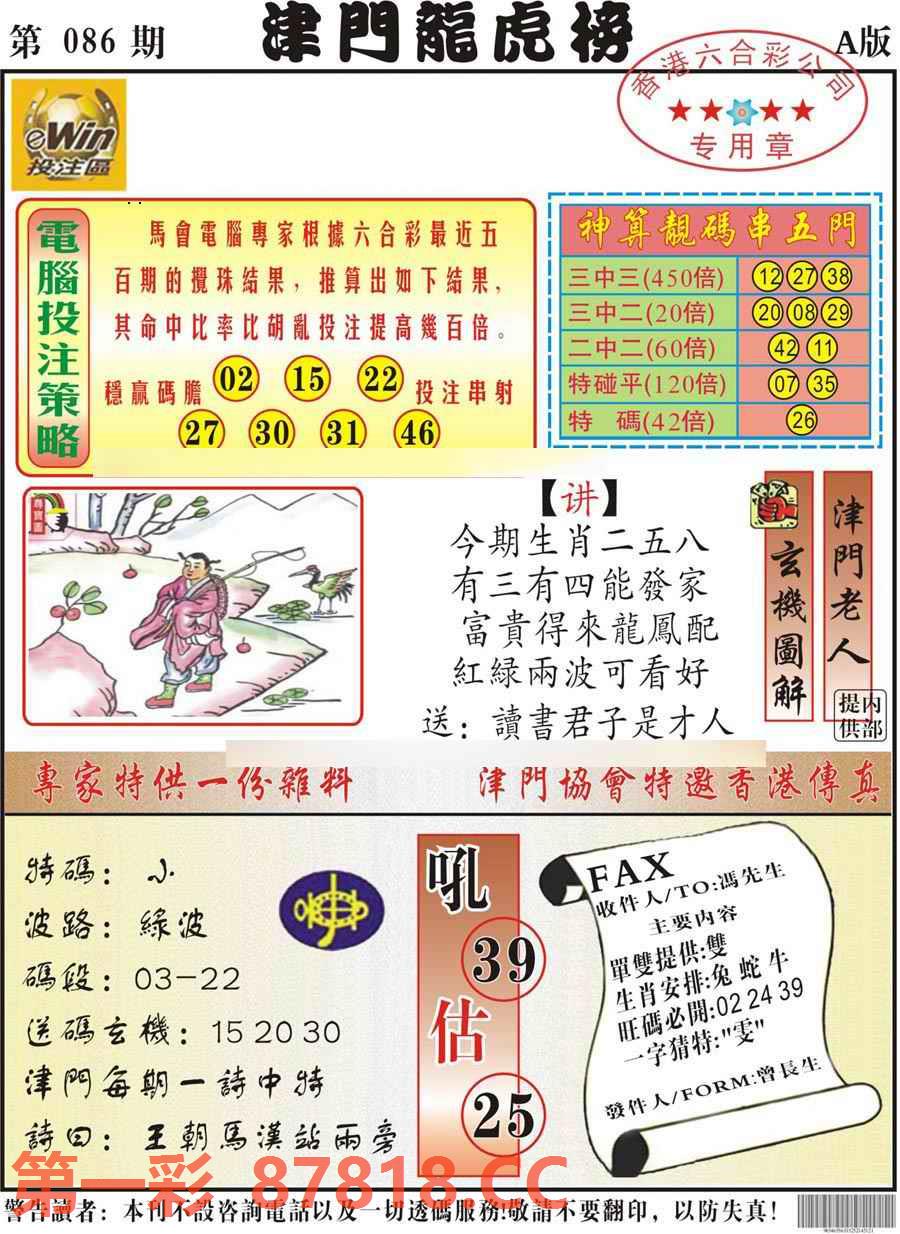 第 086 期
津門龍虎榜
A版
香港六合彩公司
专用章
eWin
投注區
電腦投注策略
馬會電腦專家根據六合彩最近五
百期的攪珠結果，推算出如下結果，
其命中比率比胡亂投注提高幾百倍。
穩贏碼膽 02 15 22 投注串射
27 30 31 46
神算靚碼串五門
三中三(450倍) 12 27 38
三中二(20倍) 20 08 29
二中二(60倍) 42 11
特碰平(120倍) 07 35
特 碼(42倍) 26
尋寶圖
【讲】
今期生肖二五八
有三有四能發家
富貴得來龍鳳配
紅緑兩波可看好
送：讀書君子是才人
玄機圖解
津門老人
内部提供
專家特供一份雜料
津門協會特邀香港傳真
特碼：小
波路：綠波
碼段：03-22
送碼玄機：15 20 30
津門每期一詩中特
詩曰：王朝馬漢站兩旁
吼
39
估
25
FAX
收件人/TO:馮先生
主要内容
單雙提供:雙
生肖安排:兔 蛇 牛
旺碼必開:02 24 39
一字猜特:"雯"
發件人/FORM:曾長生
第一彩 87818.CC
警告讀者：本刊不設咨詢電話以及一切透碼服務!敬請不要翻印，以防失真!